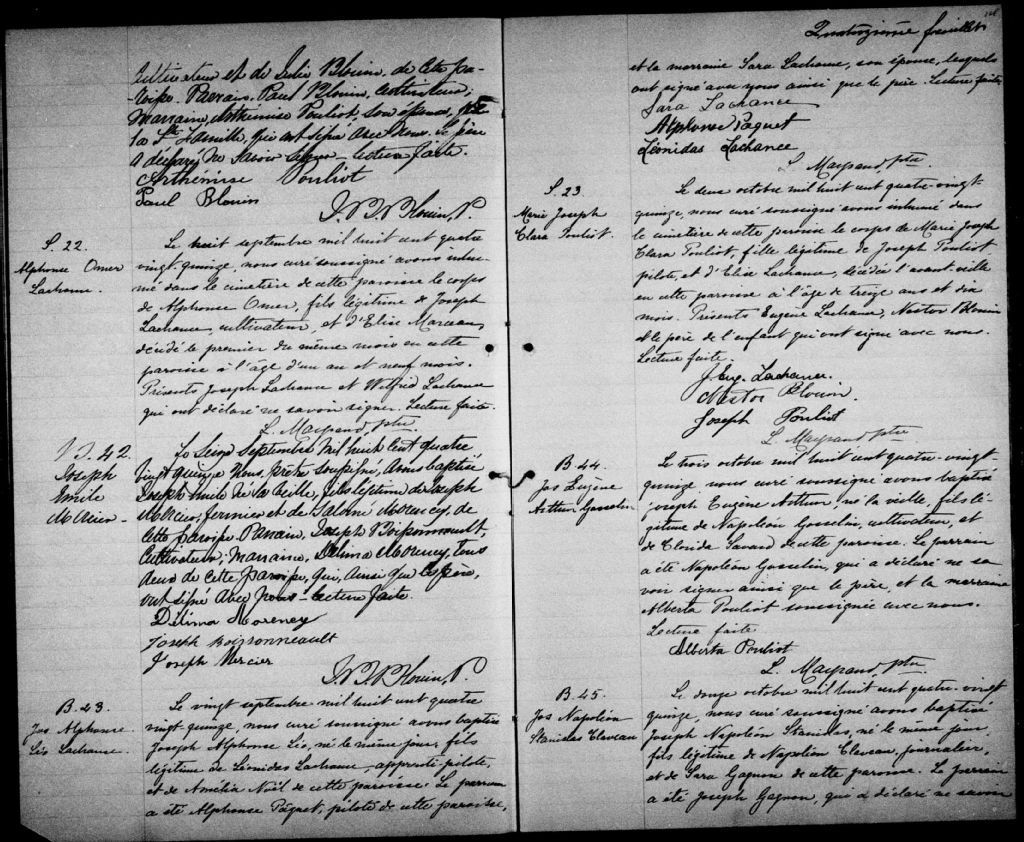 cultivateur et de Julie Blouin, de cette pa-
roisse. Parrain, Paul Blouin, cultivateur;
Marraine, Arthémise Pouliot, son épouse, de
la Ste Famille, qui ont signé avec nous. Le père
a déclaré ne savoir signer - Lecture faite.
Arthémise Pouliot
Paul Blouin
Blouin, P.
S. 22.
Alphonse Omer
Lachance.
Le huit septembre mil huit cent quatre
vingt-quinze, nous curé soussigné avons inhu-
mé dans le cimetière de cette paroisse le corps
de Alphonse Omer, fils légitime de Joseph
Lachance, cultivateur, et d'Elise Marceau,
décédé le premier du même mois en cette
paroisse à l'âge d'un an et neuf mois.
Présents Joseph Lachance et Wilfrid Lachance
qui ont déclaré ne savoir signer. Lecture faite.
L. Mayrand, ptre
B. 42
Joseph
Emile
Mercier -
Le Seize Septembre Mil huit cent quatre
vingt quinze Nous, prêtre soussigné, avons baptisé
Joseph Emile né la veille, fils légitime de Joseph
Mercier, fermier et de Salomé Morency, de
cette paroisse. Parrain, Joseph Boissonneault,
Cultivateur, Marraine, Délima Morency, tous
deux de cette paroisse, qui, ainsi que le père,
ont signé avec nous - Lecture faite.
Délima Morency
Joseph Boissonneault
Joseph Mercier
Blouin, P.
B. 43.
Jos Alphonse
Léo Lachance.
Le vingt septembre mil huit cent quatre
vingt quinze, nous curé soussigné avons baptisé
Joseph Alphonse Léo, né le même jour, fils
légitime de Léonidas Lachance, apprenti-pilote,
et de Amélia Noël de cette paroisse. Le parrain
a été Alphonse Paquet, pilote de cette paroisse,
Quatorzième feuillet
et la marraine Sara Lachance, son épouse, lesquels
ont signé avec nous ainsi que le père. Lecture faite.
Sara Lachance
Alphonse Paquet
Léonidas Lachance
L. Mayrand, ptre
S. 23.
Marie Joseph
Clara Pouliot.
Le deux octobre mil huit cent quatre-vingt-
quinze, nous curé soussigné avons inhumé dans
le cimetière de cette paroisse le corps de Marie Joseph
Clara Pouliot, fille légitime de Joseph Pouliot
pilote, et d'Elise Lachance, décédée l'avant-veille
en cette paroisse à l'âge de treize ans et dix
mois. Présents Eugène Lachance, Nestor Blouin
et le père de l'enfant qui ont signé avec nous.
Lecture faite.
J. Eug. Lachance.
Nestor Blouin.
Joseph Pouliot
L. Mayrand ptre
B. 44.
Jos Eugène
Arthur Gosselin
Le trois octobre mil huit cent quatre-vingt-
quinze nous curé soussigné avons baptisé
Joseph Eugène Arthur, né la veille, fils lé-
gitime de Napoléon Gosselin, cultivateur, et
de Clorida Savard de cette paroisse. Le parrain
a été Napoléon Gosselin, qui a déclaré ne sa-
voir signer ainsi que le père, et la marraine
Alberta Pouliot soussignée avec nous.
Lecture faite
Alberta Pouliot
L. Mayrand, ptre
B. 45.
Jos Napoléon
Stanislas Claveau
Le douze octobre mil huit cent quatre-vingt
quinze, nous curé soussigné avons baptisé
Joseph Napoléon Stanislas, né le même jour,
fils légitime de Napoléon Claveau, journalier,
et de Sara Gagnon de cette paroisse. Le parrain
a été Joseph Gagnon, qui a déclaré ne savoir